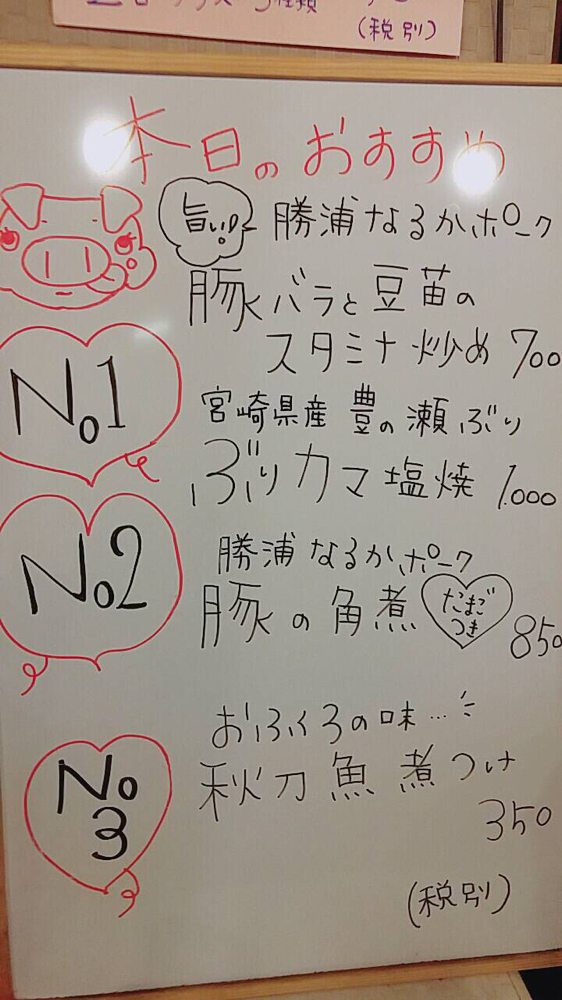 3種類
(税別)
本日のおすすめ
旨い!! 勝浦なるかポーク
豚バラと豆苗の
スタミナ炒め 700
No1
宮崎県産 豊の瀬ぶり
ぶりカマ塩焼 1.000
No2
勝浦なるかポーク
豚の角煮 たまごつき 850
No3
おふくろの味…
秋刀魚煮つけ
350
(税別)